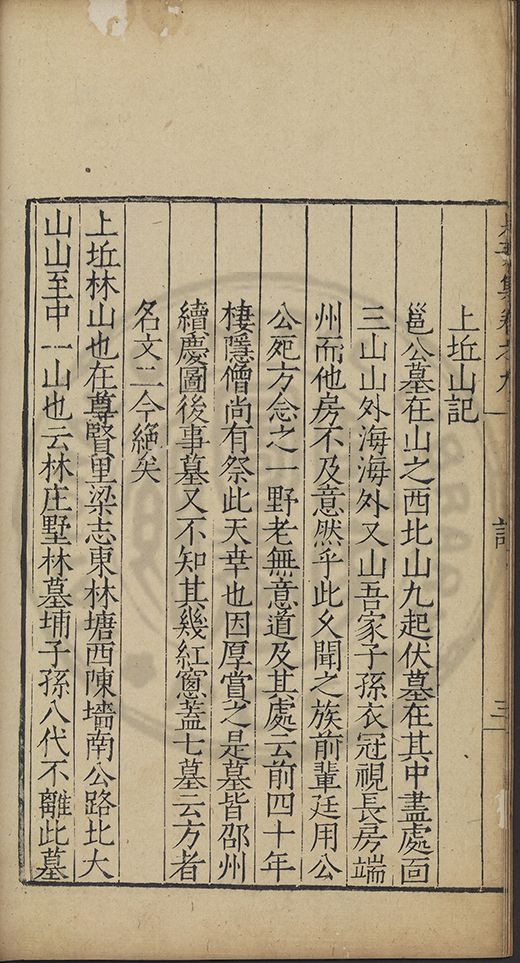 上垢山記
邕公墓在山之西北山九起伏墓在其中盡處面
三山山外海海外又山吾家子孫衣冠視長房端
州而他房不及意然乎此攵聞之族前輩廷用公
公死方念之一野老無意道及其處云前四十年
棲隱僧尚有祭此天幸也因厚賞之是墓皆邵州
續慶圖後事墓又不知其幾紅窻蓋七墓云方者
名文二今絶矣
上垢林山也在尊賢里梁志東林塘西陳墻南公路北大
山山至中一山也云林庄墅林墓埔子孫八代不離此墓